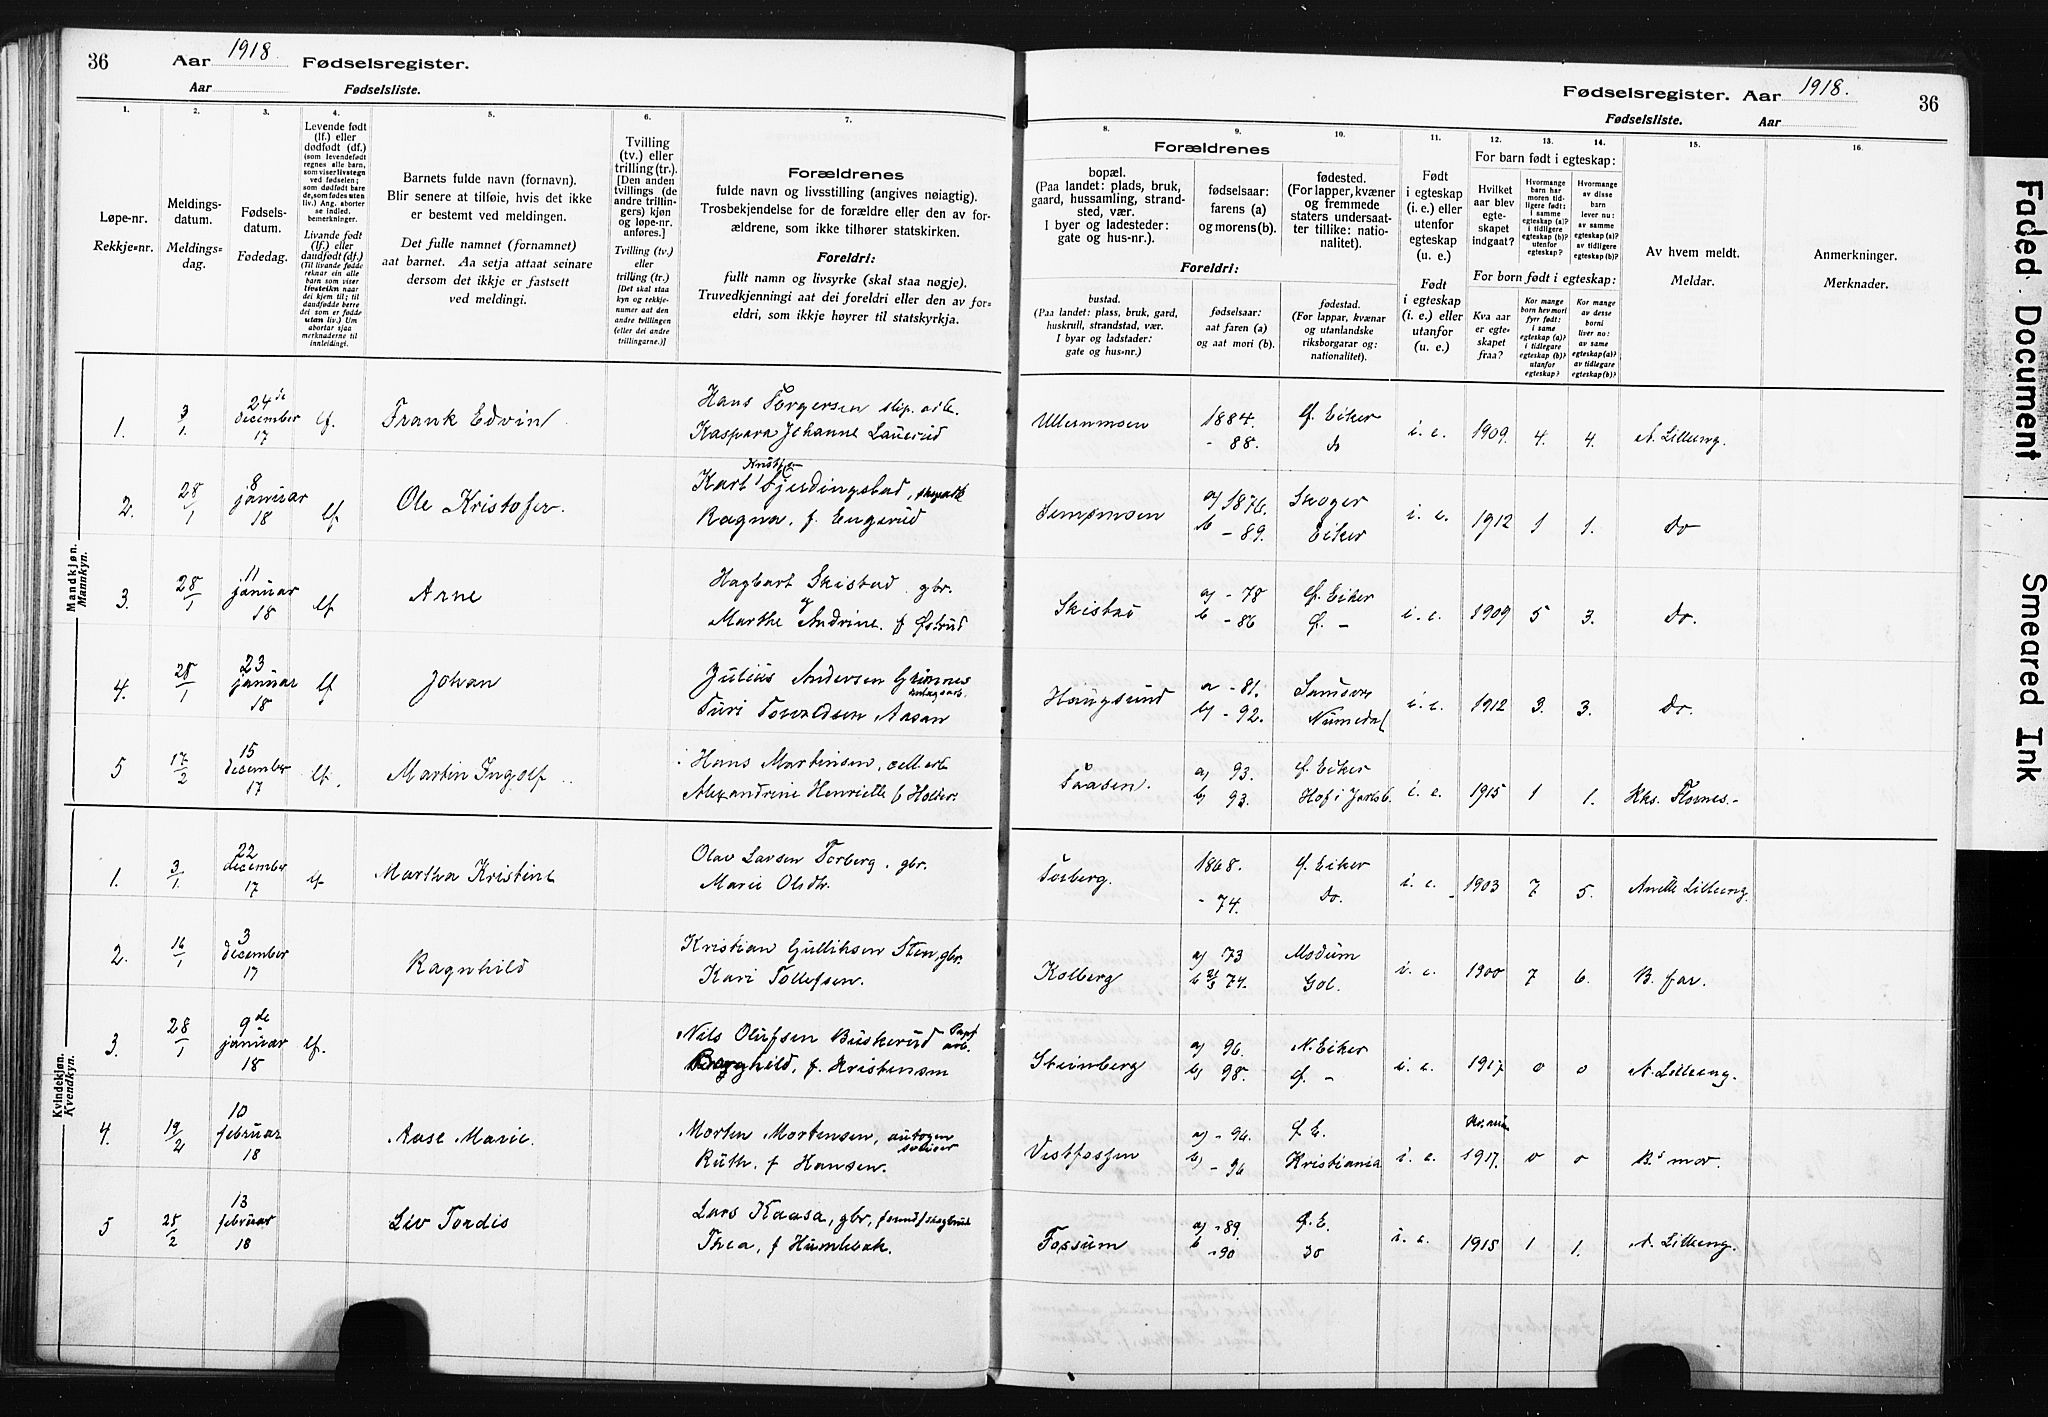 36 Aar 1918. Fødselsregister.
Aar Fødselsliste.
Fødselsregister. Aar 1918. 36
Fødselsliste. Aar
1. 2. 3. 4. 5. 6. 7.
Løpe-nr.
Rekkje=nr.
Meldings-
datum.
Meldings=
dag.
Fødsels-
datum.
Fødedag.
Levende født
(lf.) eller
dødfødt (df.)
(som levendefødt
regnes alle barn,
som viser livstegn
ved fødselen;
som dødfødt bare
de, som fødes uten
liv.) Ang. aborter
se indled.
bemerkninger.
Livande født
(lf.) eller
daudfødt (df.)
(Til livande fødde
reknar ein alle
barn som viser
livsteikn naar
dei kjem til; til
daudfødde berre
dei som er fødde
utan liv.) Um
abortar sjaa
merknaderne til
innleidingi.
Barnets fulde navn (fornavn).
Blir senere at tilføie, hvis det ikke
er bestemt ved meldingen.
Det fulle namnet (fornamnet)
aat barnet. Aa setja attaat seinare
dersom det ikkje er fastsett
ved meldingi.
Tvilling
(tv.) eller
trilling (tr.).
[Den anden
tvillings (de
andre trillin-
gers) kjøn
og løpe-nr.
anføres.]
Tvilling (tv.)
eller
trilling (tr.)
[Det skal staa
kyn og rekkje-
numer aat den
andre tvillingen
(eller dei andre
trillingarne.)]
Forældrenes
fulde navn og livsstilling (angives nøiagtig).
Trosbekjendelse for de forældre eller den av for-
ældrene, som ikke tilhører statskirken.
Foreldri:
fullt namn og livsyrke (skal staa nøgje).
Truvedkjenningi aat dei foreldri eller den av for=
eldri, som ikkje høyrer til statskyrkja.
8. 9. 10. 11. 12. 13. 14. 15. 16.
Forældrenes
bopæl.
(Paa landet: plads, bruk,
gaard, hussamling, strand-
sted, vær.
I byer og ladesteder:
gate og hus-nr.).
fødselsaar:
farens (a)
og morens (b).
fødested.
(For lapper, kvæner
og fremmede
staters undersaat-
ter tillike: natio-
nalitet).
Foreldri:
bustad.
(Paa landet: plass, bruk, gard,
huskrull, strandstad, vær.
I byar og ladstader:
gate og hus=nr.)
fødselsaar:
aat faren (a)
og aat mori (b).
fødestad.
(For lappar, kvænar
og utanlandske
riksborgarar og:
nationalitet).
Født
i egteskap
(i. e.) eller
utenfor
egteskap
(u. e.)
Født
i egteskap
(i. e.) eller
utanfor
(u. e.)
For barn født i egteskap:
Hvilket
aar blev
egte-
skapet
indgaat?
Hvormange
barn har
moren tid-
ligere født:
i samme
egteskap (a)?
i tidligere
egteskap (b)?
utenfor
egteskap?
Hvormange
av disse
barn
lever nu:
av samme
egteskap (a)?
av tidligere
egteskap (b)?
For born født i egteskap:
Kva aar
er egte-
skapet
fraa?
Kor mange
born hev mori
fyrr født:
i same
egteskap (a)?
i tidlegare
egteskap (b)?
utanfor
egteskap?
Kor mange
av desse
borni
liver nu:
av same
egteskap (a)?
av tidlegare
egteskap (b)?
Av hvem meldt.
Meldar.
Anmerkninger.
Merknader.
Mandkjøn.
Mannkyn.
1. 3/1. 24de december 17 lf. Frank Edvin Hans Torgersen slip. arb. Ullernmoen 1884. Ø. Eiker i. e. 1909. 4. 4. A. Lilleeng.
Kaspara Johanne Lauerud - 88. do
2. 28/1 8 januar 18 lf Ole Kristofer. Karl Fjerdingstad, Sempsmoen a) 1876. Skoger i. e. 1912 1 1. Do
Ragna, f. Engerud b - 89. Eiker
3. 28/1 11 januar 18 lf Arne Hagbart Skistad gbr. Skistad a) - 78 Ø. Eiker i. e. 1909 5 3. Do.
Marthe Andrine. f Østrud b - 86 Ø. -
4. 28/1 23 januar 18 lf Johan Julius Andersen Grimnes Haugsund a - 81. Sandsvær i. e. 1912 3. 3. Do.
Turi Torvaldsen Aasan b) - 92. Numedal
5 17/2 15 december 17 lf. Martin Ingolf Hans Martinsen, cell. arb Aasen. a) 93. Ø. Eiker i. e. 1915 1 1. Kks. Flornes.-
Alexandrine Henriette f Holter. b) 93. Hof i Jarlsb.
Kvindekjøn.
Kvendkyn.
1. 3/1. 22 december 17 lf Martha Kristine Olav Larsen Torberg, gbr. Torberg. 1868. Ø. Eiker i. e. 1903 7 5. Anette Lilleeng.
Marie Olsdtr. - 74. Do.
2. 16/1 3 december 17 Ragnhild Kristian Gulliksen Sten, gbr. Kolberg a) 73 Modum i. e. 1900 7 6. B. far.
Kari Tollefsen. b 74. Gol.
3. 28/1 9de januar 18 lf. Nils Olufsen Buskerud Papf arb. Steinberg a) 96. N. Eiker i. e. 1917 0 0 A. Lilleeng.
Borghild, f. Kristensen b) 98. Ø. -
4. 19/2 10 februar 18 Aase Marie. Morten Mortensen, autogen sveiser Vestfossen a) - 96. Ø. E. i. e. 1917. 0 0 B's mor.
Ruth. f Hansen. b) - 96 Kristiania
5 25/2 13 februar 18 Liv Tordis Lars Kaasa, gbr, Fossum a) - 89. Ø. E. i. e. 1915 1 1. A. Lilleeng.
Thea, f Humlebæk. b - 90 Do
Faded Document
Smeared Ink